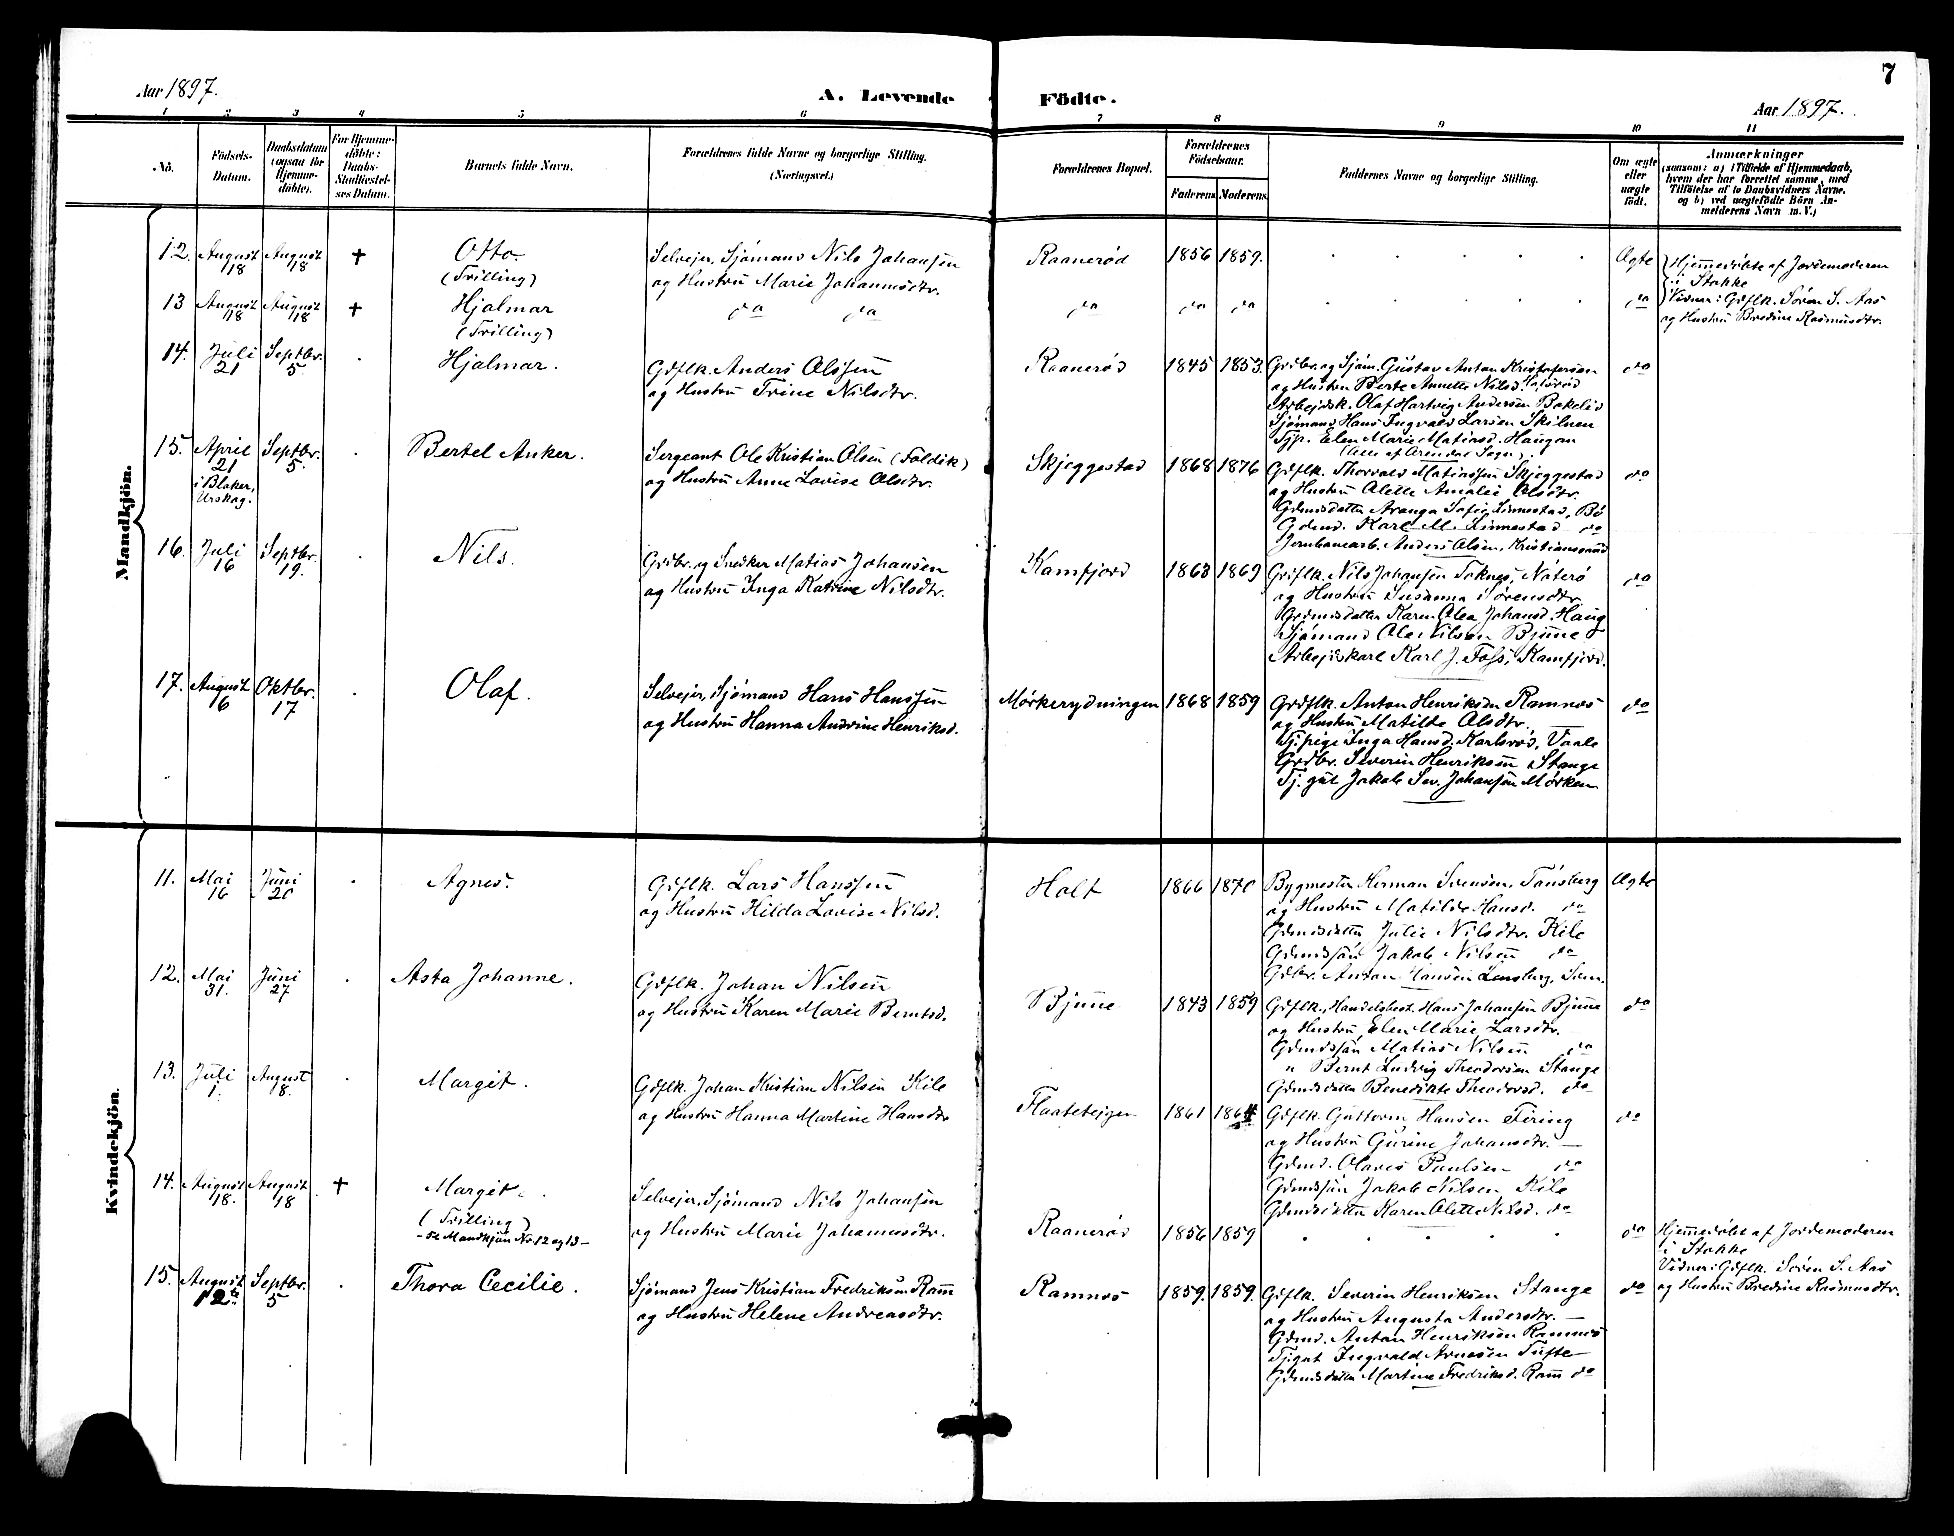 7
Aar 1897.
A. Levende
Födte.
Aar 1897.
1 2 3 4 5 6 7 8 9 10 11
No.
Födsels-
Datum.
Daabsdatum
(ogsaa for
Hjemme-
döbte).
For Hjemme-
döbte:
Daabs-
Stadfæstel-
ses Datum.
Barnets fulde Navn.
Forældrenes fulde Navne og borgerlige Stilling.
(Næringsvei.)
Forældrenes Bopæl.
Forældrenes
Födselsaar.
Faderens Moderens
Faddernes Navne og borgerlige Stilling.
Om ægte
eller
uægte
födt.
Anmærkninger
(saasom: a) i Tilfælde af Hjemmedaab,
hvem der har forrettet samme, med
Tilföielse af to Daabsvidners Navne,
og b) ved uægtefödte Börn An-
melderens Navn m. V.)
Mandkjön.
12. August 18 August 18 +
Otto
(Trilling)
Selvejer, Sjömand Nils Johansen
og Hustru Marie Johannesdtr.
Raanerød 1856 1859.
Ægte
Hjemmedøbte af Jordemoderen
i Stokke
13 August 18 August 18 +
Hjalmar
(Trilling)
do do
do do do
do
Vidner: Gdflk. Søren S. Aas
og Hustru Bredine Rasmusdtr.
14. Juli 21 Septbr. 5
Hjalmar.
Gdflk. Anders Olssen
og Hustru Trine Nilsdtr.
Raanerød 1845 1853.
Grdbr. og Sjöm. Gustav Anton Kristofersen
og Hustru Berte Annette Nilsd.
Arbejdsk. Olaf Hartvig Andersen Bakelid
Sjömand Hans Ingvald Larsen Skilnen
Tjp. Elen Marie Matiasd. Haugan
(Alle af Arendal Sogn).
do
15. April 21 Septbr. 5
i Blaker,
Urskog.
Bertel Anker.
Sergeant Ole Kristian Olsen (Foldik)
og Hustru Anne Lovise Olsdtr.
Skjeggestad 1868 1876
Gdflk. Thorvald Matiassen Skjeggestad
og Hustru Olette Amalie Olsdtr.
Gdmdsdatter Aranga Sofie Linnestad, Bø
Gdmd. Karl M. Linnestad do
Jernbanearb. Anders Olsen, Kristianssand
do
16. Juli 16 Septbr. 19.
Nils.
Grdbr. og Snedker Matias Johansen
og Hustru Inga Katrine Nilsdtr.
Kamfjord 1863 1869
Grdflk. Nils Johansen Toknes, Nøterø
og Hustru Susanna Sørensdtr
Grdmdsdatter Karen Olea Johansd. Haug
Sjömand Ole Nilsen Bjune
Arbejdskarl Karl J. Foss, Kamfjord.
do
17. August 6 Oktbr. 17
Olaf.
Selvejer, Sjömand Hans Hanssen
og Hustru Hanna Andrine Henriksd.
Mørkerydningen 1868 1859
Grdflk. Anton Henriksen Ramnæs
og Hustru Matilde Olsdtr.
Tj.pige Inga Hansd. Karlsrød, Vaale
Grdbr. Severin Henriksen Stange
Tj. gut Jakob Sev. Johansen Mørken
do
Kvindekjön.
11. Mai 16 Juni 20
Agnes.
Gdflk. Lars Hanssen
og Hustru Hilda Lovise Nilsd.
Holt 1866 1870
Bygmester Herman Svensen, Tönsberg
og Hustru Matilde Hansd. do
Gdmdsdatter Julie Nilsdtr. Kile
Gdmdssön Jakob Nilsen do
Gdbr. Anton Hansen Lensberg, Sem.
Ægte
12. Mai 31. Juni 27
Asta Johanne.
Gdflk. Johan Nilsen
og Hustru Karen Marie Berntsd.
Bjune 1843 1859
Gdflk., Handelsbest. Hans Johansen Bjune
og Hustru Elen Marie Larsdtr.
Gdmdssön Matias Nilsen do
" Bernt Ludvig Theodorsen Stange
Gdmdsdatter Benedikte Theodorsd. do
do
13. Juli 1. August 8.
Margit.
Gdflk. Johan Kristian Nilsen Kile
og Hustru Hanna Martine Hansdtr
Flaateteigen 1861 1864
Gdflk. Guttorm Hansen Firing
og Hustru Gurine Johansdtr. —
Gdmd. Olaves Paulsen do
Gdmdssön Jakob Nilsen Kile
Gdmdsdatter Karen Olette Nilsd. do
do
14. August 18. August 18 +
Margit
(Trilling)
-se Mandkjön No. 12 og 13-
Selvejer, Sjömand Nils Johansen
og Hustru Marie Johannesdtr.
Raanerød 1856 1859
do
Hjemmedøbt af Jordemoderen
i Stokke
Vidner: Gdflk. Sören S. Aas
og Hustru Bredine Rasmusdtr.
15. August 12te Septbr. 5
Thora Cecilie.
Sjömand Jens Kristian Fredriksen Ram
og Hustru Helene Andreasdtr.
Ramnæs 1859. 1859.
Gdflk. Severin Henriksen Stange
og Hustru Augusta Andersdtr. —
Gdmd. Anton Henriksen Ramnæs
Tj.gut Ingvald Arnesen Tufte
Gdmdsdatter Martine Fredriksd. Ram do
do